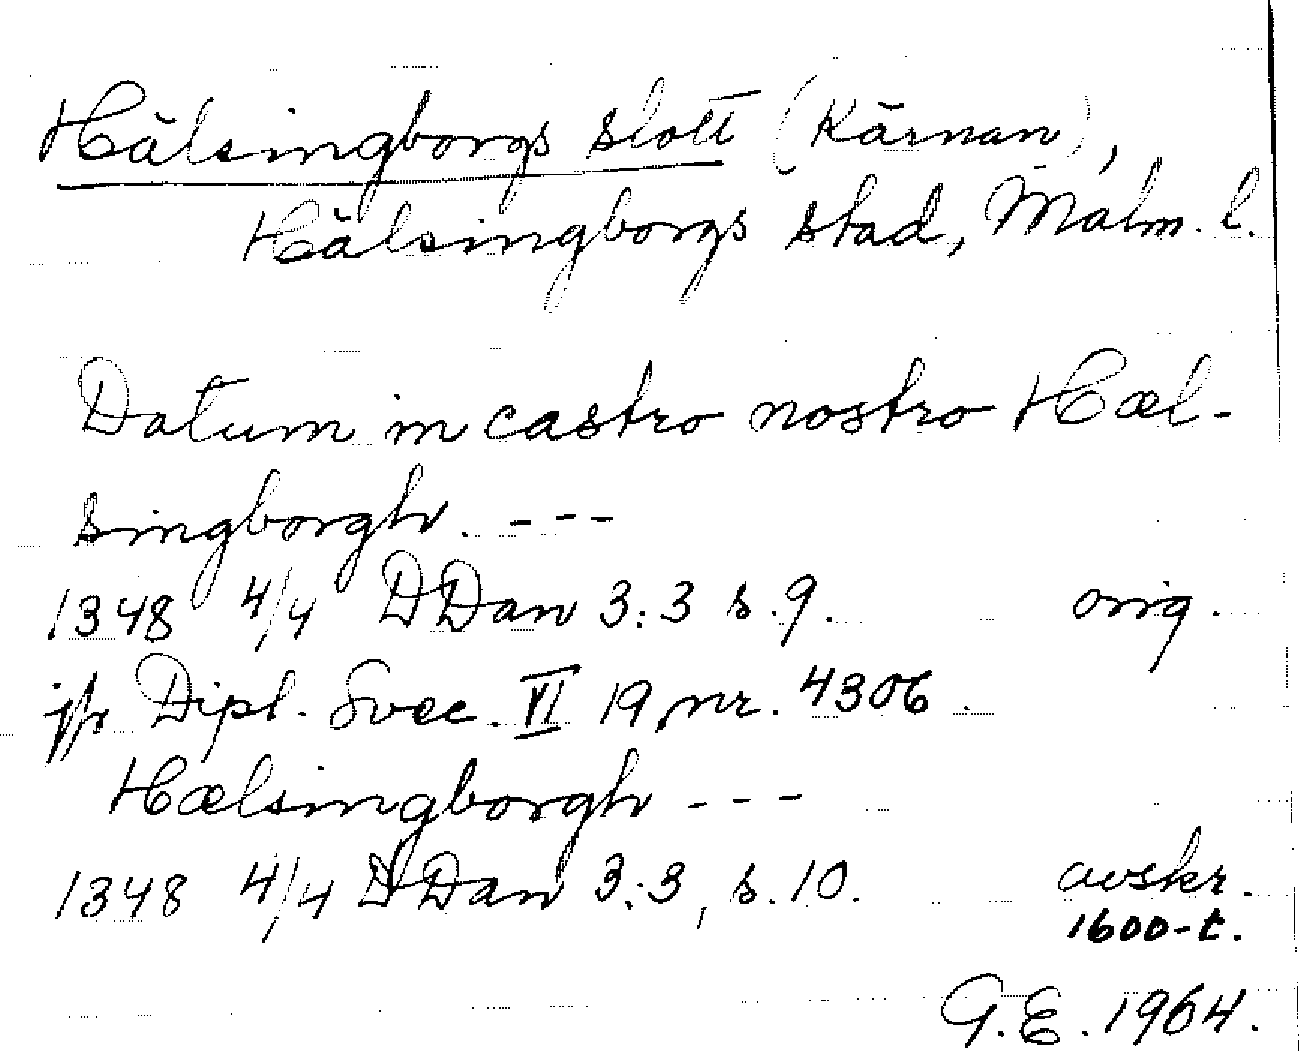 Hälsingborgs slott (Kärnan),
Hälsingborgs stad, Malm. l.
Datum in castro nostro Hæl-
singborgh. ---
1348 4/4 DDan 3:3 s.9. orig.
jfr Dipl. Svec. VI 19, nr. 4306.
Hælsingborgh ---
1348 4/4 DDan 3:3, s.10. avskr.
1600-t.
G.E. 1964.